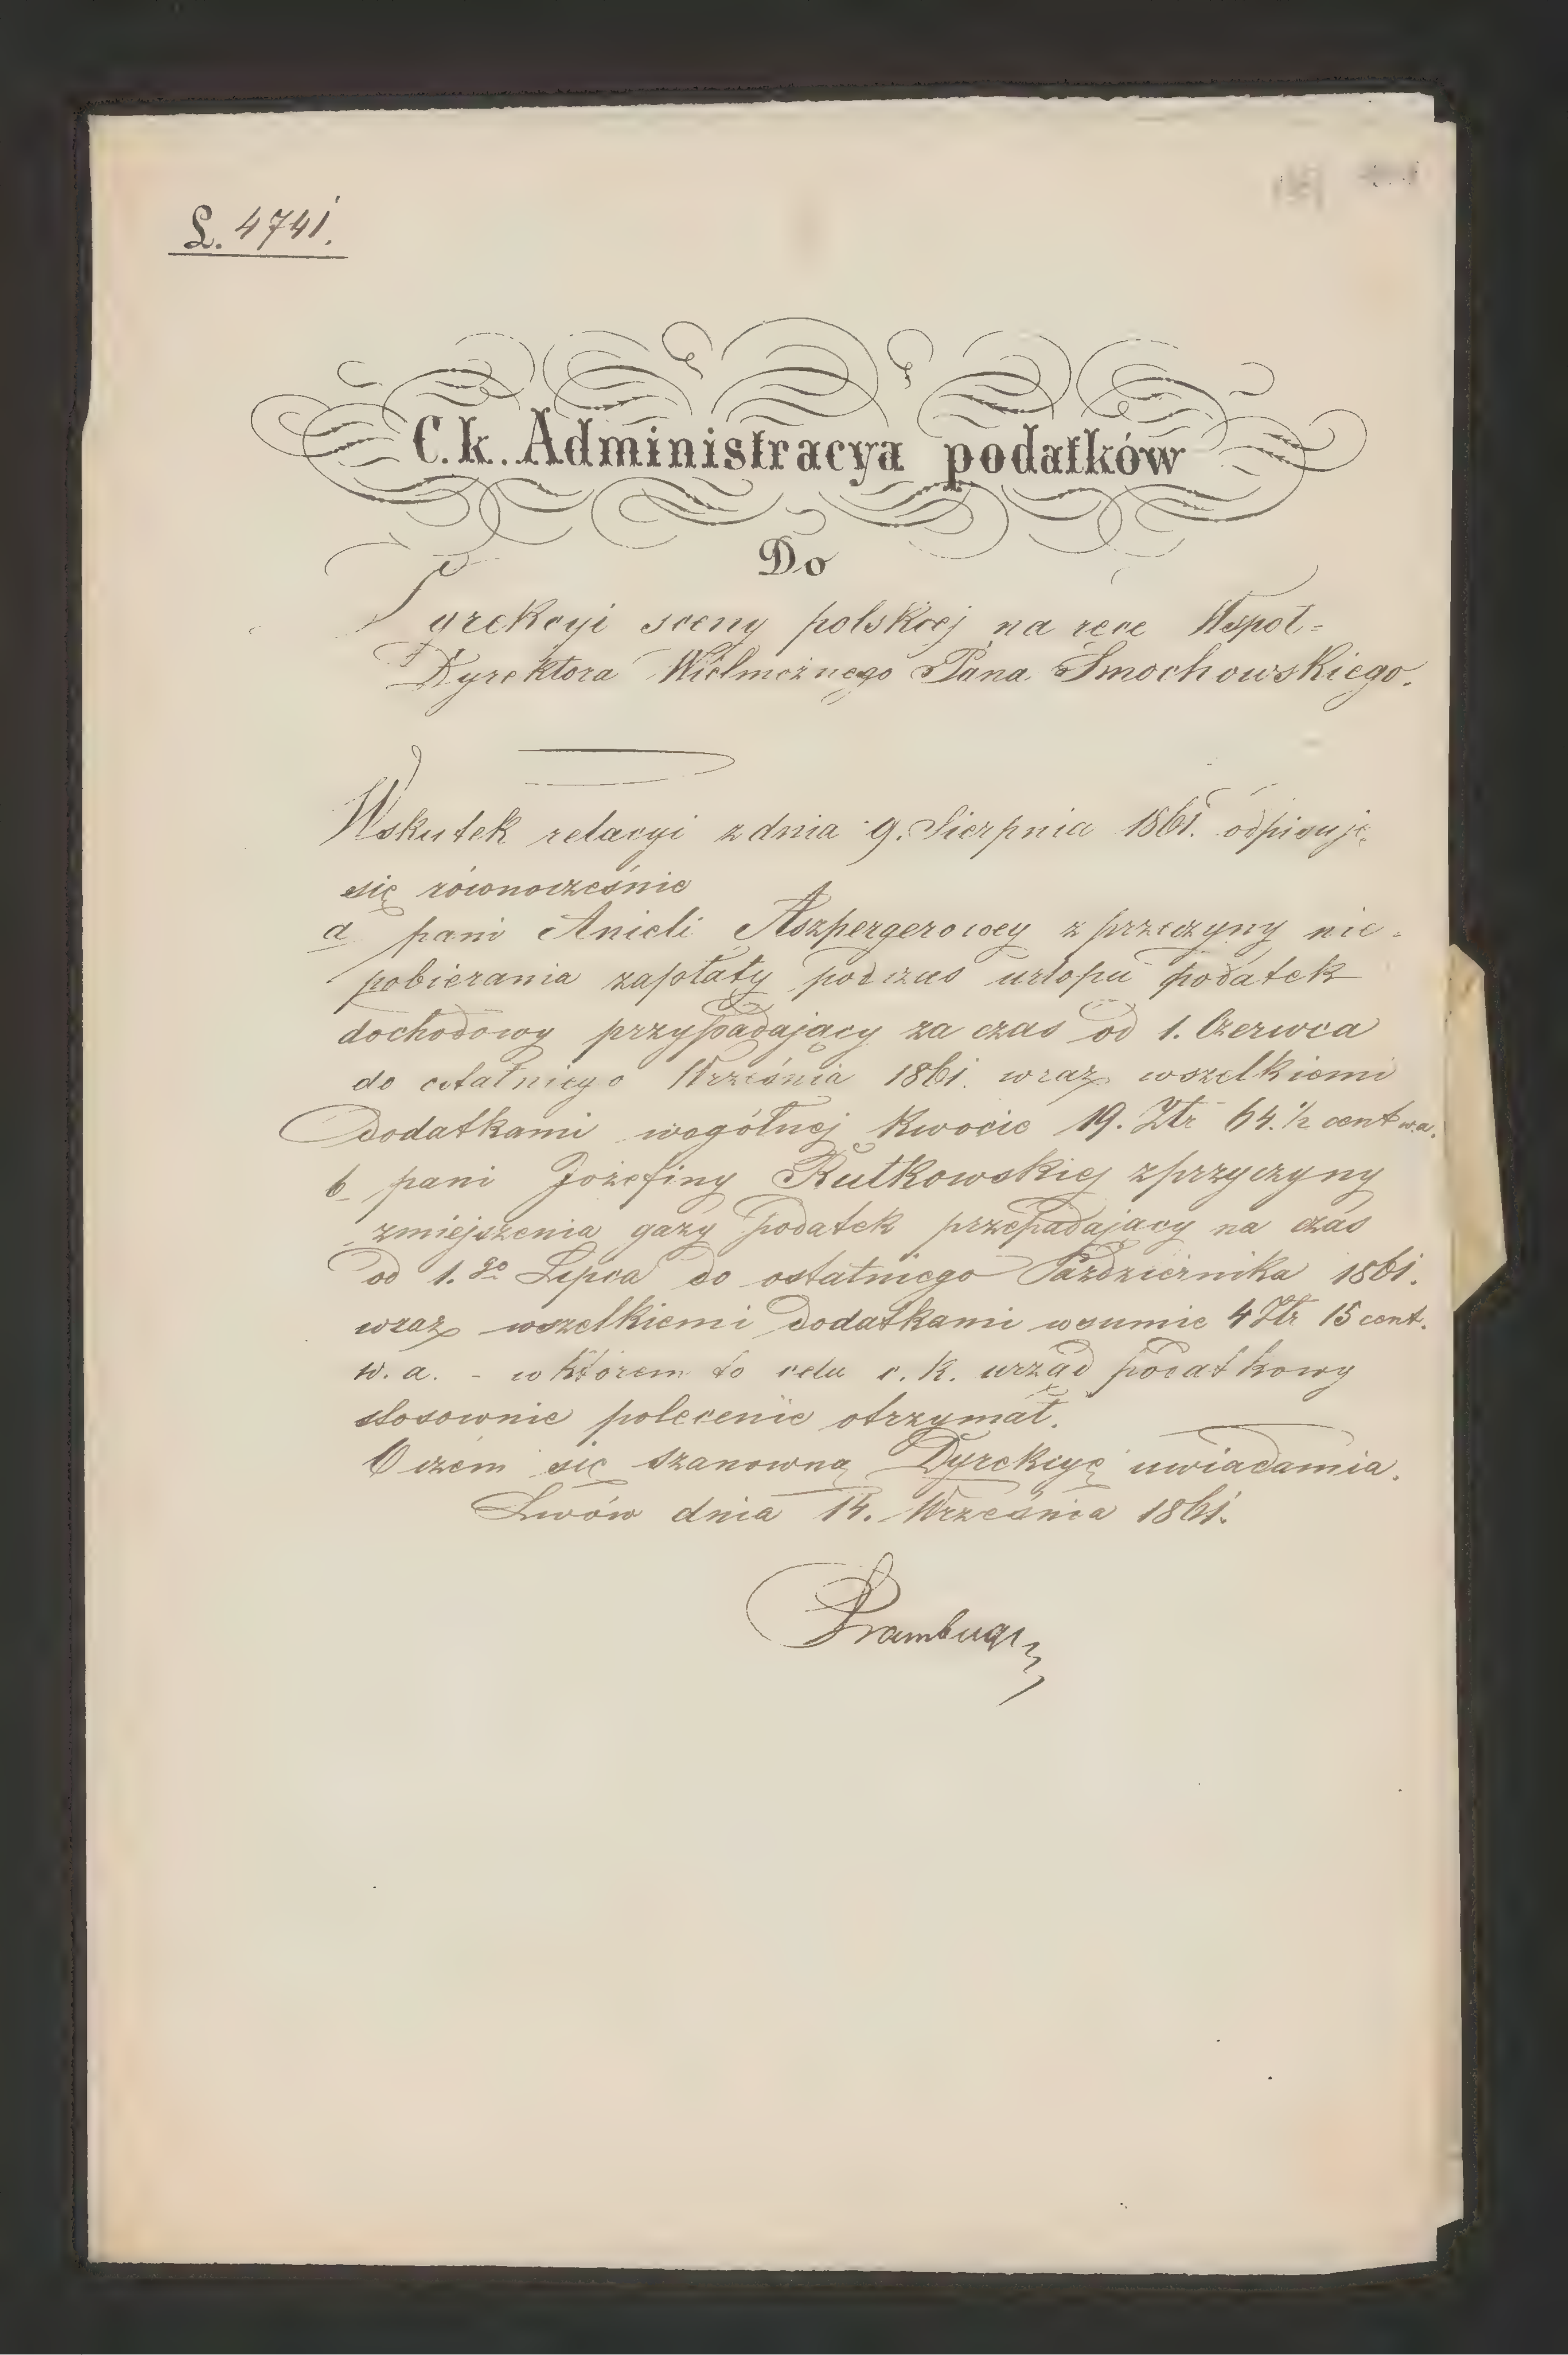 L. 4741.
C. k. Administracya podatków
Do
Dyrekcyi sceny polskiej na ręce Wspoł=
Dyrektora Wielmożnego Pana Smochowskiego.
Wskutek relacyi z dnia 9. Sierpnia 1861. odpisuje
się równocześnie
a pani Anieli Aszpergerowey z przyczyny nie=
pobierania zapłaty podczas urlopu podatek
dochodowy przypadający za czas od 1. Czerwca
do ostatniego Września 1861. wraz wszelkiemi
Dodatkami wogólnej Kwocie 19. Złr 64. 1/2 cent w.a.
b pani Jozefiny Rutkowskiej zprzyczyny
zmiejszenia gazy podatek przepadajacy na czas
od 1. go Lipca do ostatniego Października 1861.
wraz wszelkiemi Dodatkami wsumie 4 Złr 15 cent.
w. a. - w którem to celu c. k. urząd podatkowy
stosownie polecenie otrzymał.
O czem się szanowną Dyrekcyę uwiadamia.
Lwów dnia 14. Września 1861.